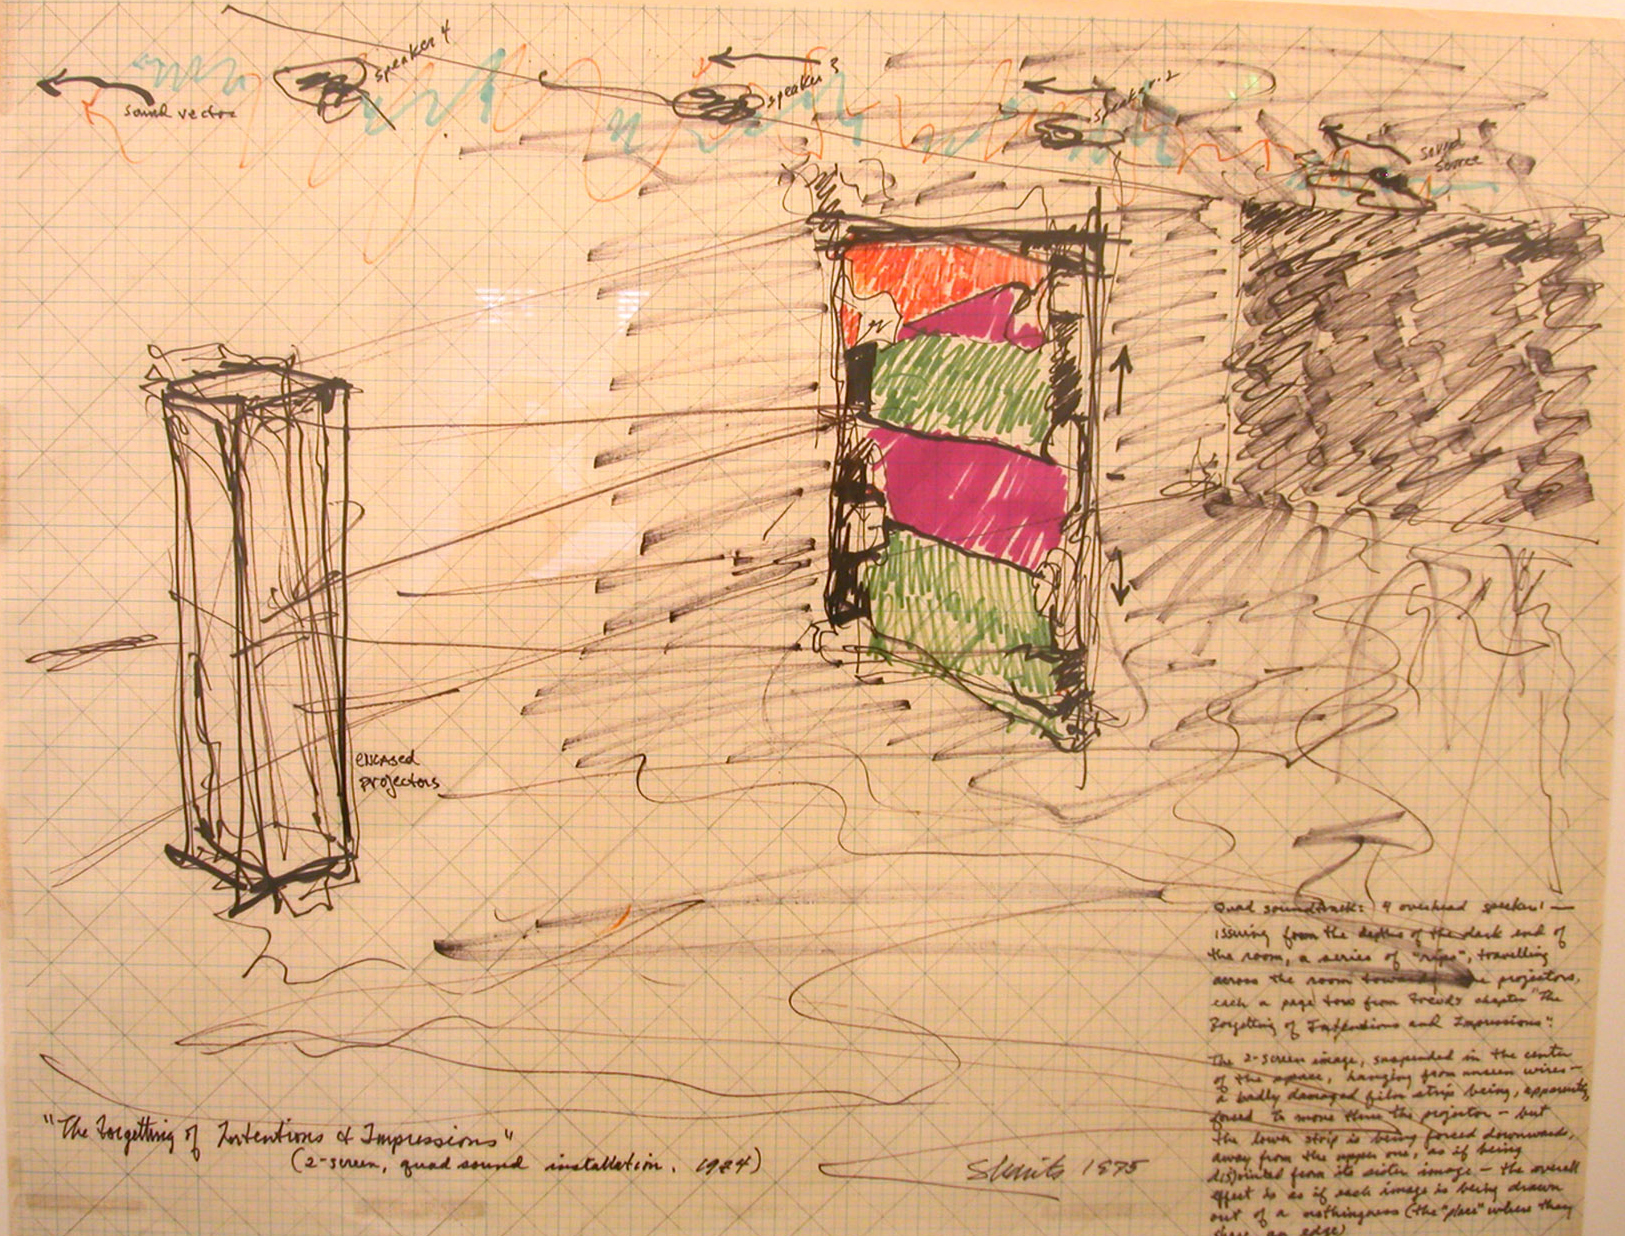 speaker 4
speaker 3
speaker 2
sound vector
sound
source
encased
projectors
Quad soundtrack: 4 overhead speakers —
issuing from the depths of the dark end of
the room, a series of "rips", travelling
across the room toward the projectors,
each a page torn from Freud's chapter "The
Forgetting of Intentions and Impressions".
The 2-screen image, suspended in the center
of the space, hanging from unseen wires —
a badly damaged film strip being, apparently,
forced to move thru the projector — but
the lower strip is being forced downwards,
away from the upper one, as if being
disjointed from its sister image — the overall
effect is as if each image is being drawn
out of a nothingness (the "place" where they
share an edge)
"The Forgetting of Intentions & Impressions"
(2-screen, quad sound installation. 1974)
Sharits 1975